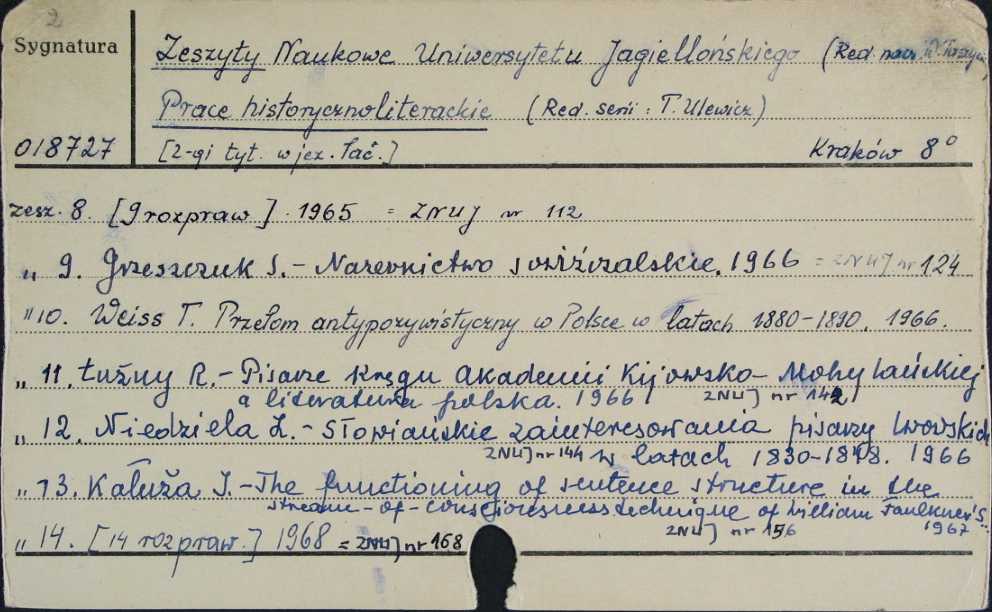 2
Sygnatura
Zeszyty Naukowe Uniwersytetu Jagiellońskiego (Red. nacz.
Prace historycznoliterackie (Red. serii: T. Ulewicz)
018727 [2-gi tyt. w jęz. łac.] Kraków 8°
zesz. 8. [9 rozpraw]. 1965 = ZNUJ nr 112
„ 9. Grzeszczuk S. - Nazewnictwo sowiźrzalskie. 1966 = ZNUJ nr 124
"10. Weiss T. Przełom antypozywistyczny w Polsce w latach 1880-1890. 1966.
„ 11. Łużny R. - Pisarze kręgu Akademii Kijowsko-Mohylańskiej
a literatura polska. 1966 ZNUJ nr 142
„ 12. Niedziela Z. - Słowiańskie zainteresowania pisarzy lwowskich
ZNUJ nr 144 w latach 1830-1848. 1966
„ 13. Kałuża I. - The functioning of sentence structure in the
stream-of-consciousness technique of William Faulkner's..
ZNUJ nr 156 1967
„ 14. [14 rozpraw.] 1968 = ZNUJ nr 168